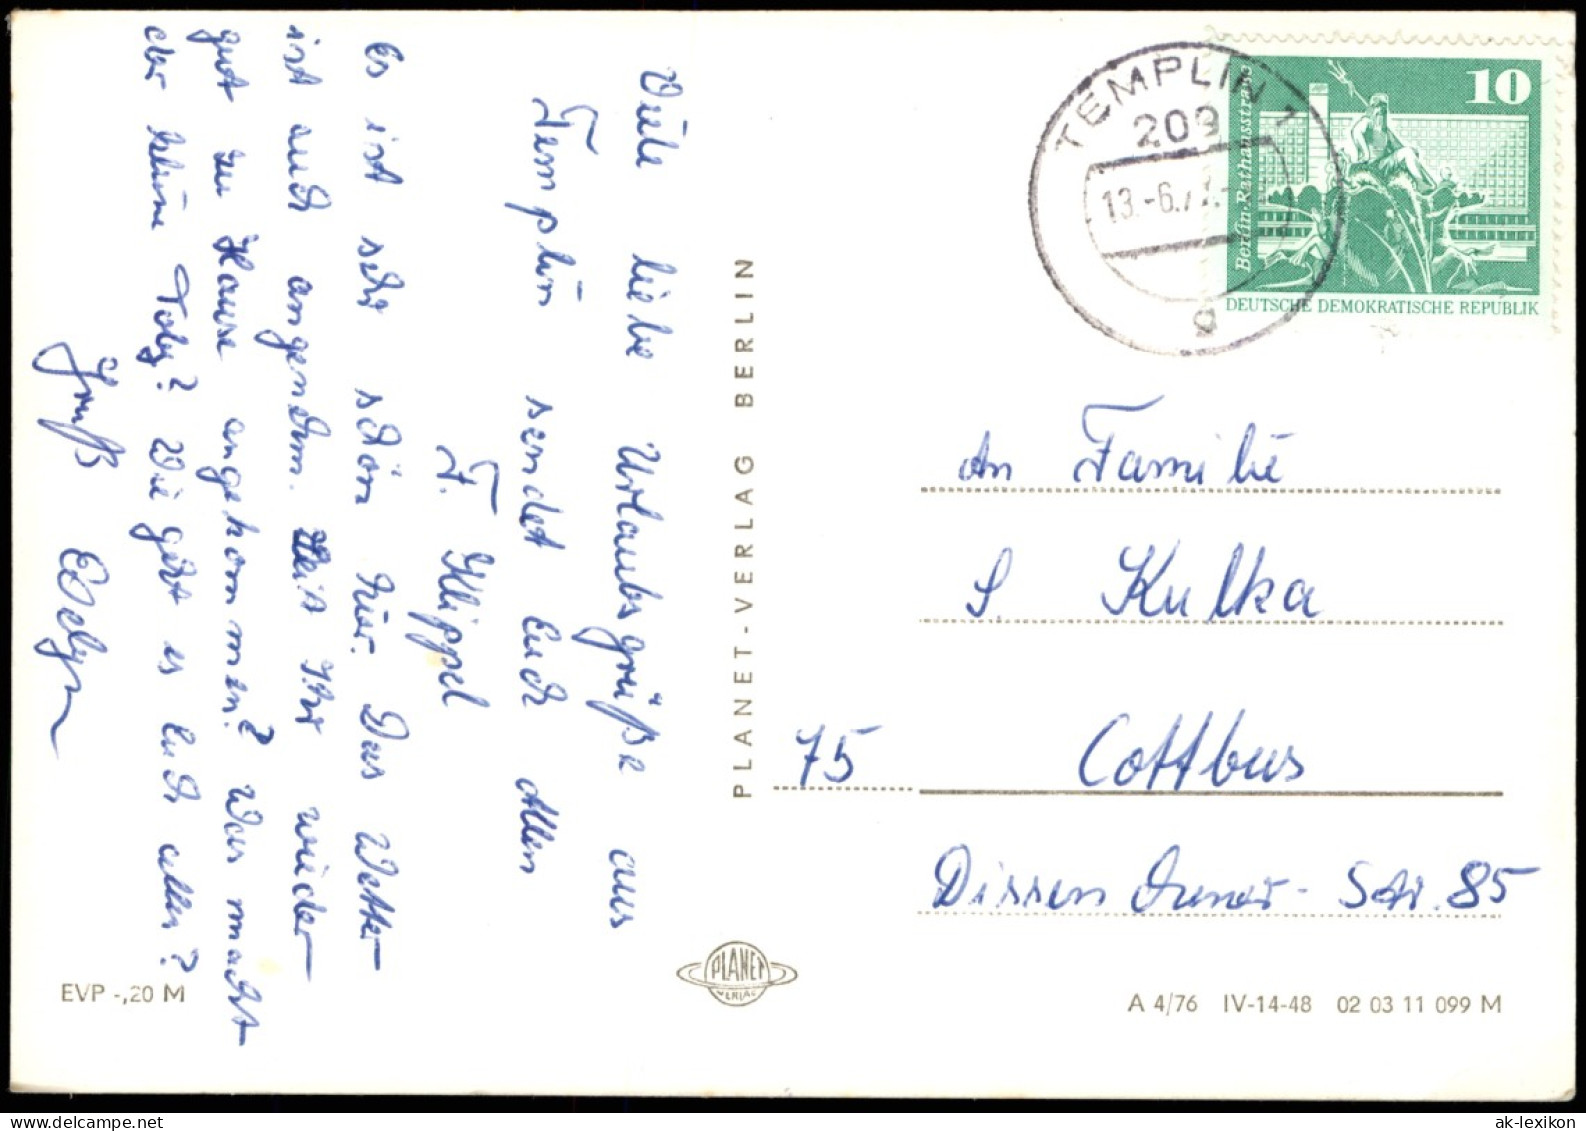 Viele liebe Urlaubsgrüße aus
Templin sendet Euch Allen
F. Klippel
Es ist sehr schön hier. Das Wetter
ist auch angenehm. Seit Ihr wieder
gut zu Hause angekommen? Was macht
der kleine Toby? Wie geht es Euch allen?
Gruß Evelyn
EVP -,20 M
PLANET-VERLAG BERLIN
PLANET
VERLAG
TEMPLIN 1
209
13.-6.77.
g
10
Berlin, Rathausstraße
DEUTSCHE DEMOKRATISCHE REPUBLIK
An Familie
S. Kulka
75 Cottbus
Dissenchener-Str. 85
A 4/76 IV-14-48 02 03 11 099 M
ak-lexikon